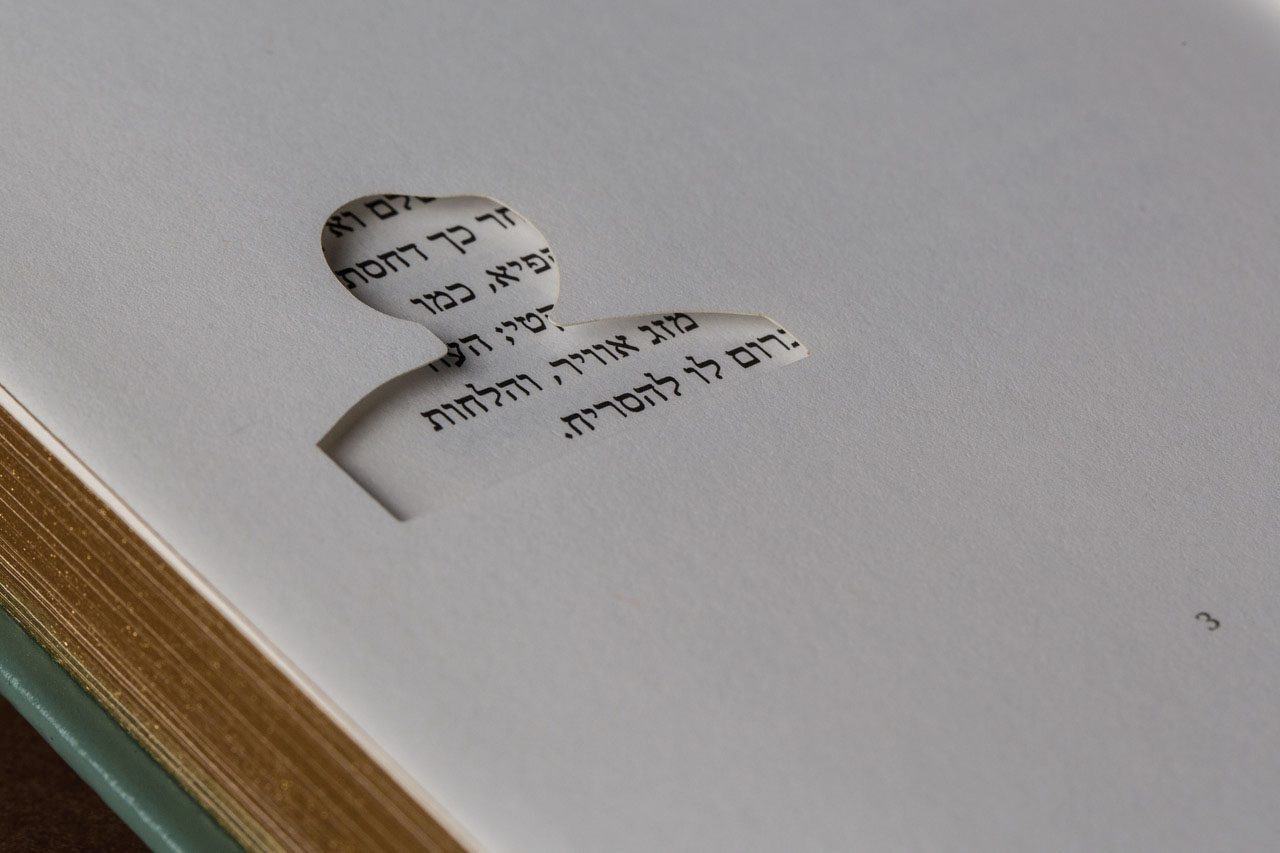 לם וא
חר כך דחסת
פיא, כמו
טי; הע
מזג אוויר, והלחות
רום לו להסריח.
3